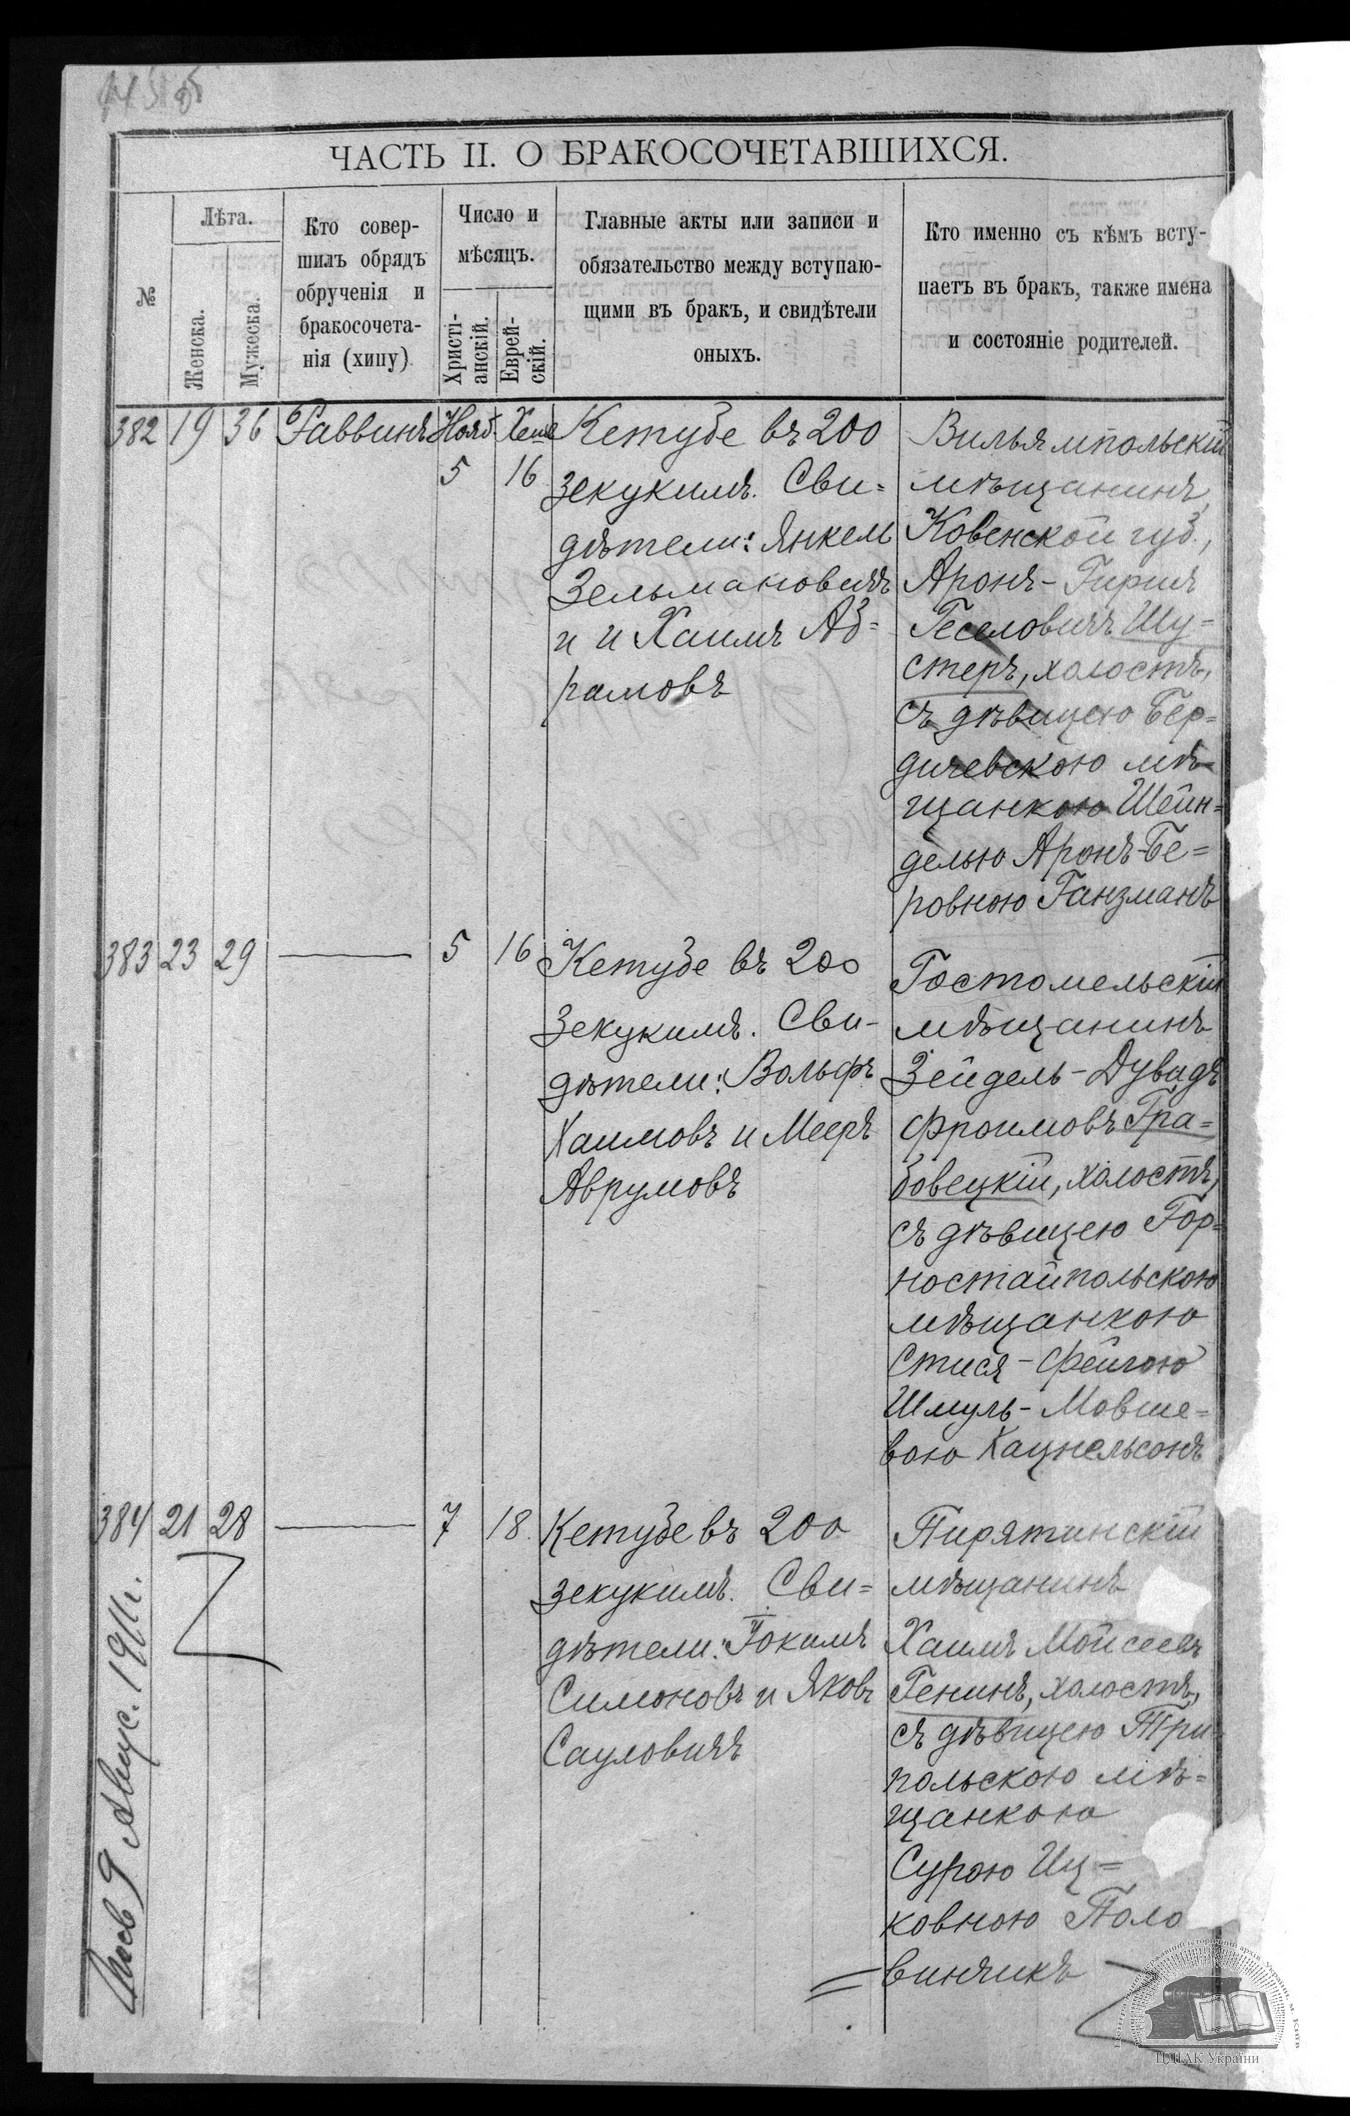 ЧАСТЬ II. О БРАКОСОЧЕТАВШИХСЯ.
№
Лѣта.
Женска.
Мужеска.
Кто совер-
шилъ обрядъ
обрученія и
бракосочета-
нія (хипу)
Число и
мѣсяцъ.
Христі-
анскій.
Еврей-
скій.
Главные акты или записи и
обязательство между вступаю-
щими въ бракъ, и свидѣтели
оныхъ.
Кто именно съ кѣмъ всту-
паетъ въ бракъ, также имена
и состояніе родителей.
382 19 36 Раввинъ Нояб. Хеш
5 16
Кетубе въ 200
зекукимъ. Сви-
дѣтели: Янкель
Зельмановичъ
и и Хаимъ Аб-
рамовъ
Вильямпольскій
мѣщанинъ
Ковенской губ.,
Аронъ-Гирша
Геселовичъ Шу-
стеръ, холостъ,
съ дѣвицею Бер-
дичевскою мѣ-
щанкою Шейн-
делью Аронъ-Бе-
ровною Ганзманъ
383 23 29 — 5 16
Кетубе въ 200
зекукимъ. Сви-
дѣтели: Вольфъ
Хаимовъ и Мееръ
Аврумовъ
Гостомельскій
мѣщанинъ
Зейдель-Дувидъ
Фроимовъ Гра-
бовецкій, холостъ,
съ дѣвицею Гор-
ностайпольскою
мѣщанкою
Стися-Фейгою
Шмуль-Мовше-
вою Кацнельсонъ
384 21 28 — 7 18.
Кетубе въ 200
зекукимъ. Сви-
дѣтели: Іокимъ
Симоновъ и Яковъ
Сауловичъ
Пирятинскій
мѣщанинъ
Хаимъ Мойсеевъ
Генинъ, холостъ,
съ дѣвицею Три-
польскою мѣ-
щанкою
Сурою Иц-
ковною Поло
винчикъ
9 Авгус. 1911г.
ЦДІАК України